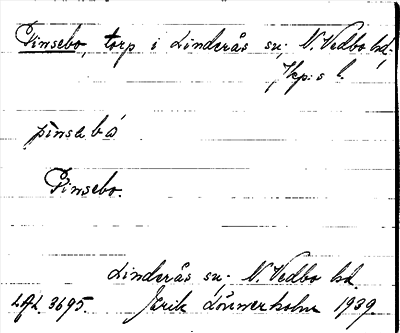 Pinsebo, torp i Linderås sn; N. Vedbo hd.
Jkp:s l.
pinsebò
Pinsebo.
Linderås sn. N. Vedbo hd.
LAL. 3695. Jerik Lönnerholm 1939